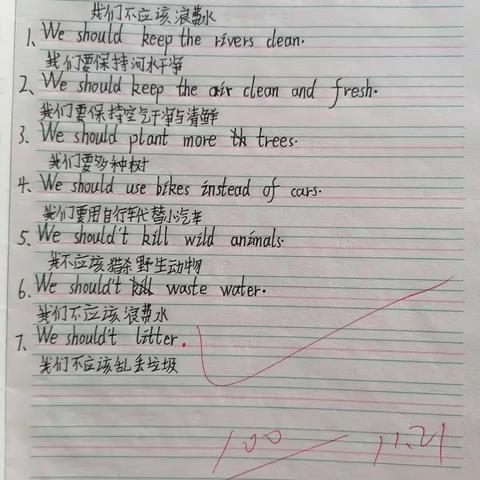 我们不应该浪费水
1、We should keep the rivers clean.
我们要保持河水干净
2、We should keep the air clean and fresh.
我们要保持空气干净与清鲜
3、We should plant more trees.
我们要多种树
4、We should use bikes instead of cars.
我们要用自行车代替小汽车
5、We should't kill wild animals.
我不应该猎杀野生动物
6、We should't waste water.
我们不应该浪费水
7、We should't litter.
我们不应该乱丢垃圾
100 11.21